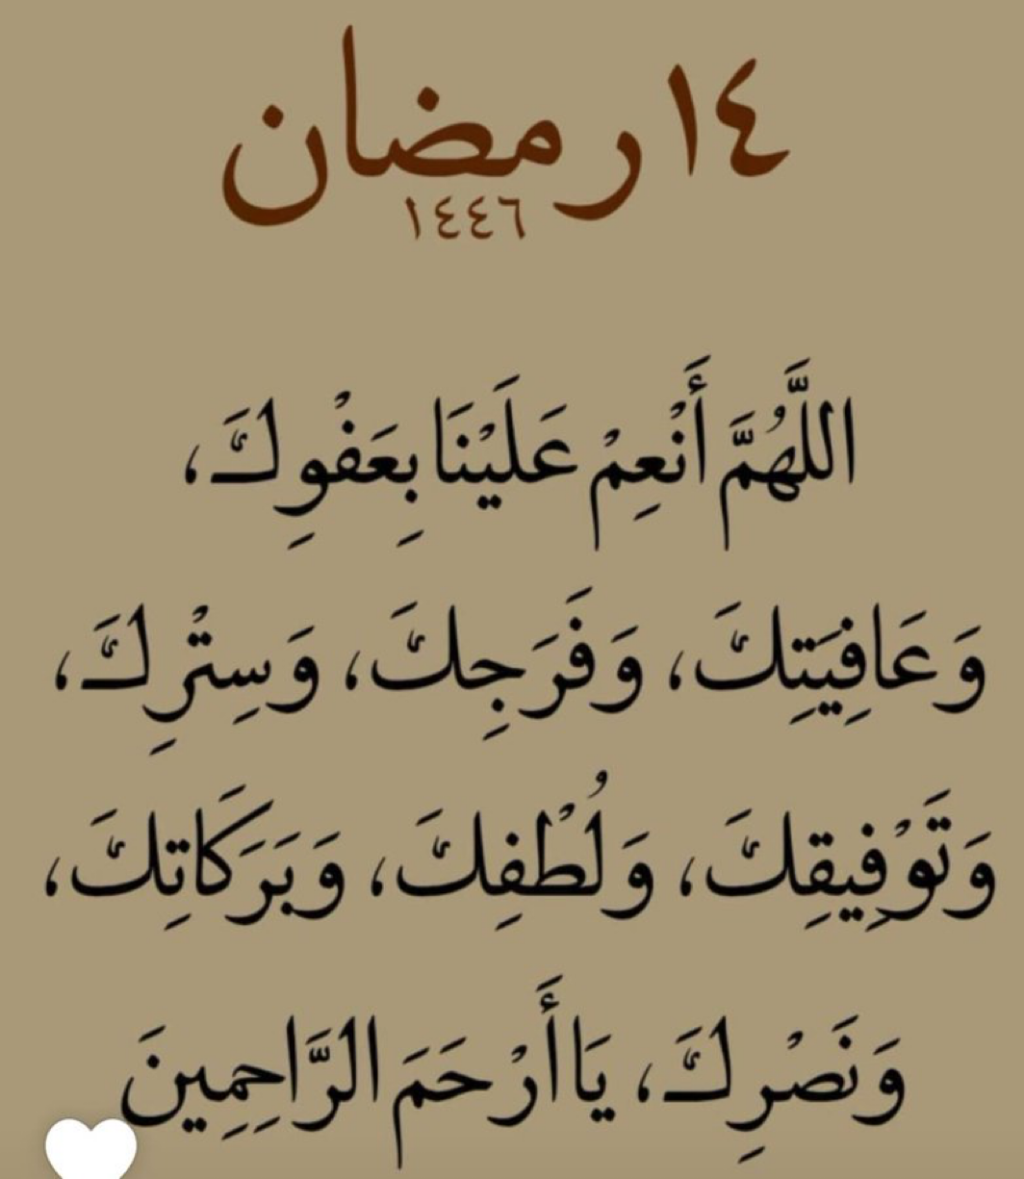 ١٤ رمضان
١٤٤٦
اللَّهُمَّ أَنْعِمْ عَلَيْنَا بِعَفْوِكَ،
وَعَافِيَتِكَ، وَفَرَجِكَ، وَسِتْرِكَ،
وَتَوْفِيقِكَ، وَلُطْفِكَ، وَبَرَكَاتِكَ،
وَنَصْرِكَ، يَا أَرْحَمَ الرَّاحِمِينَ